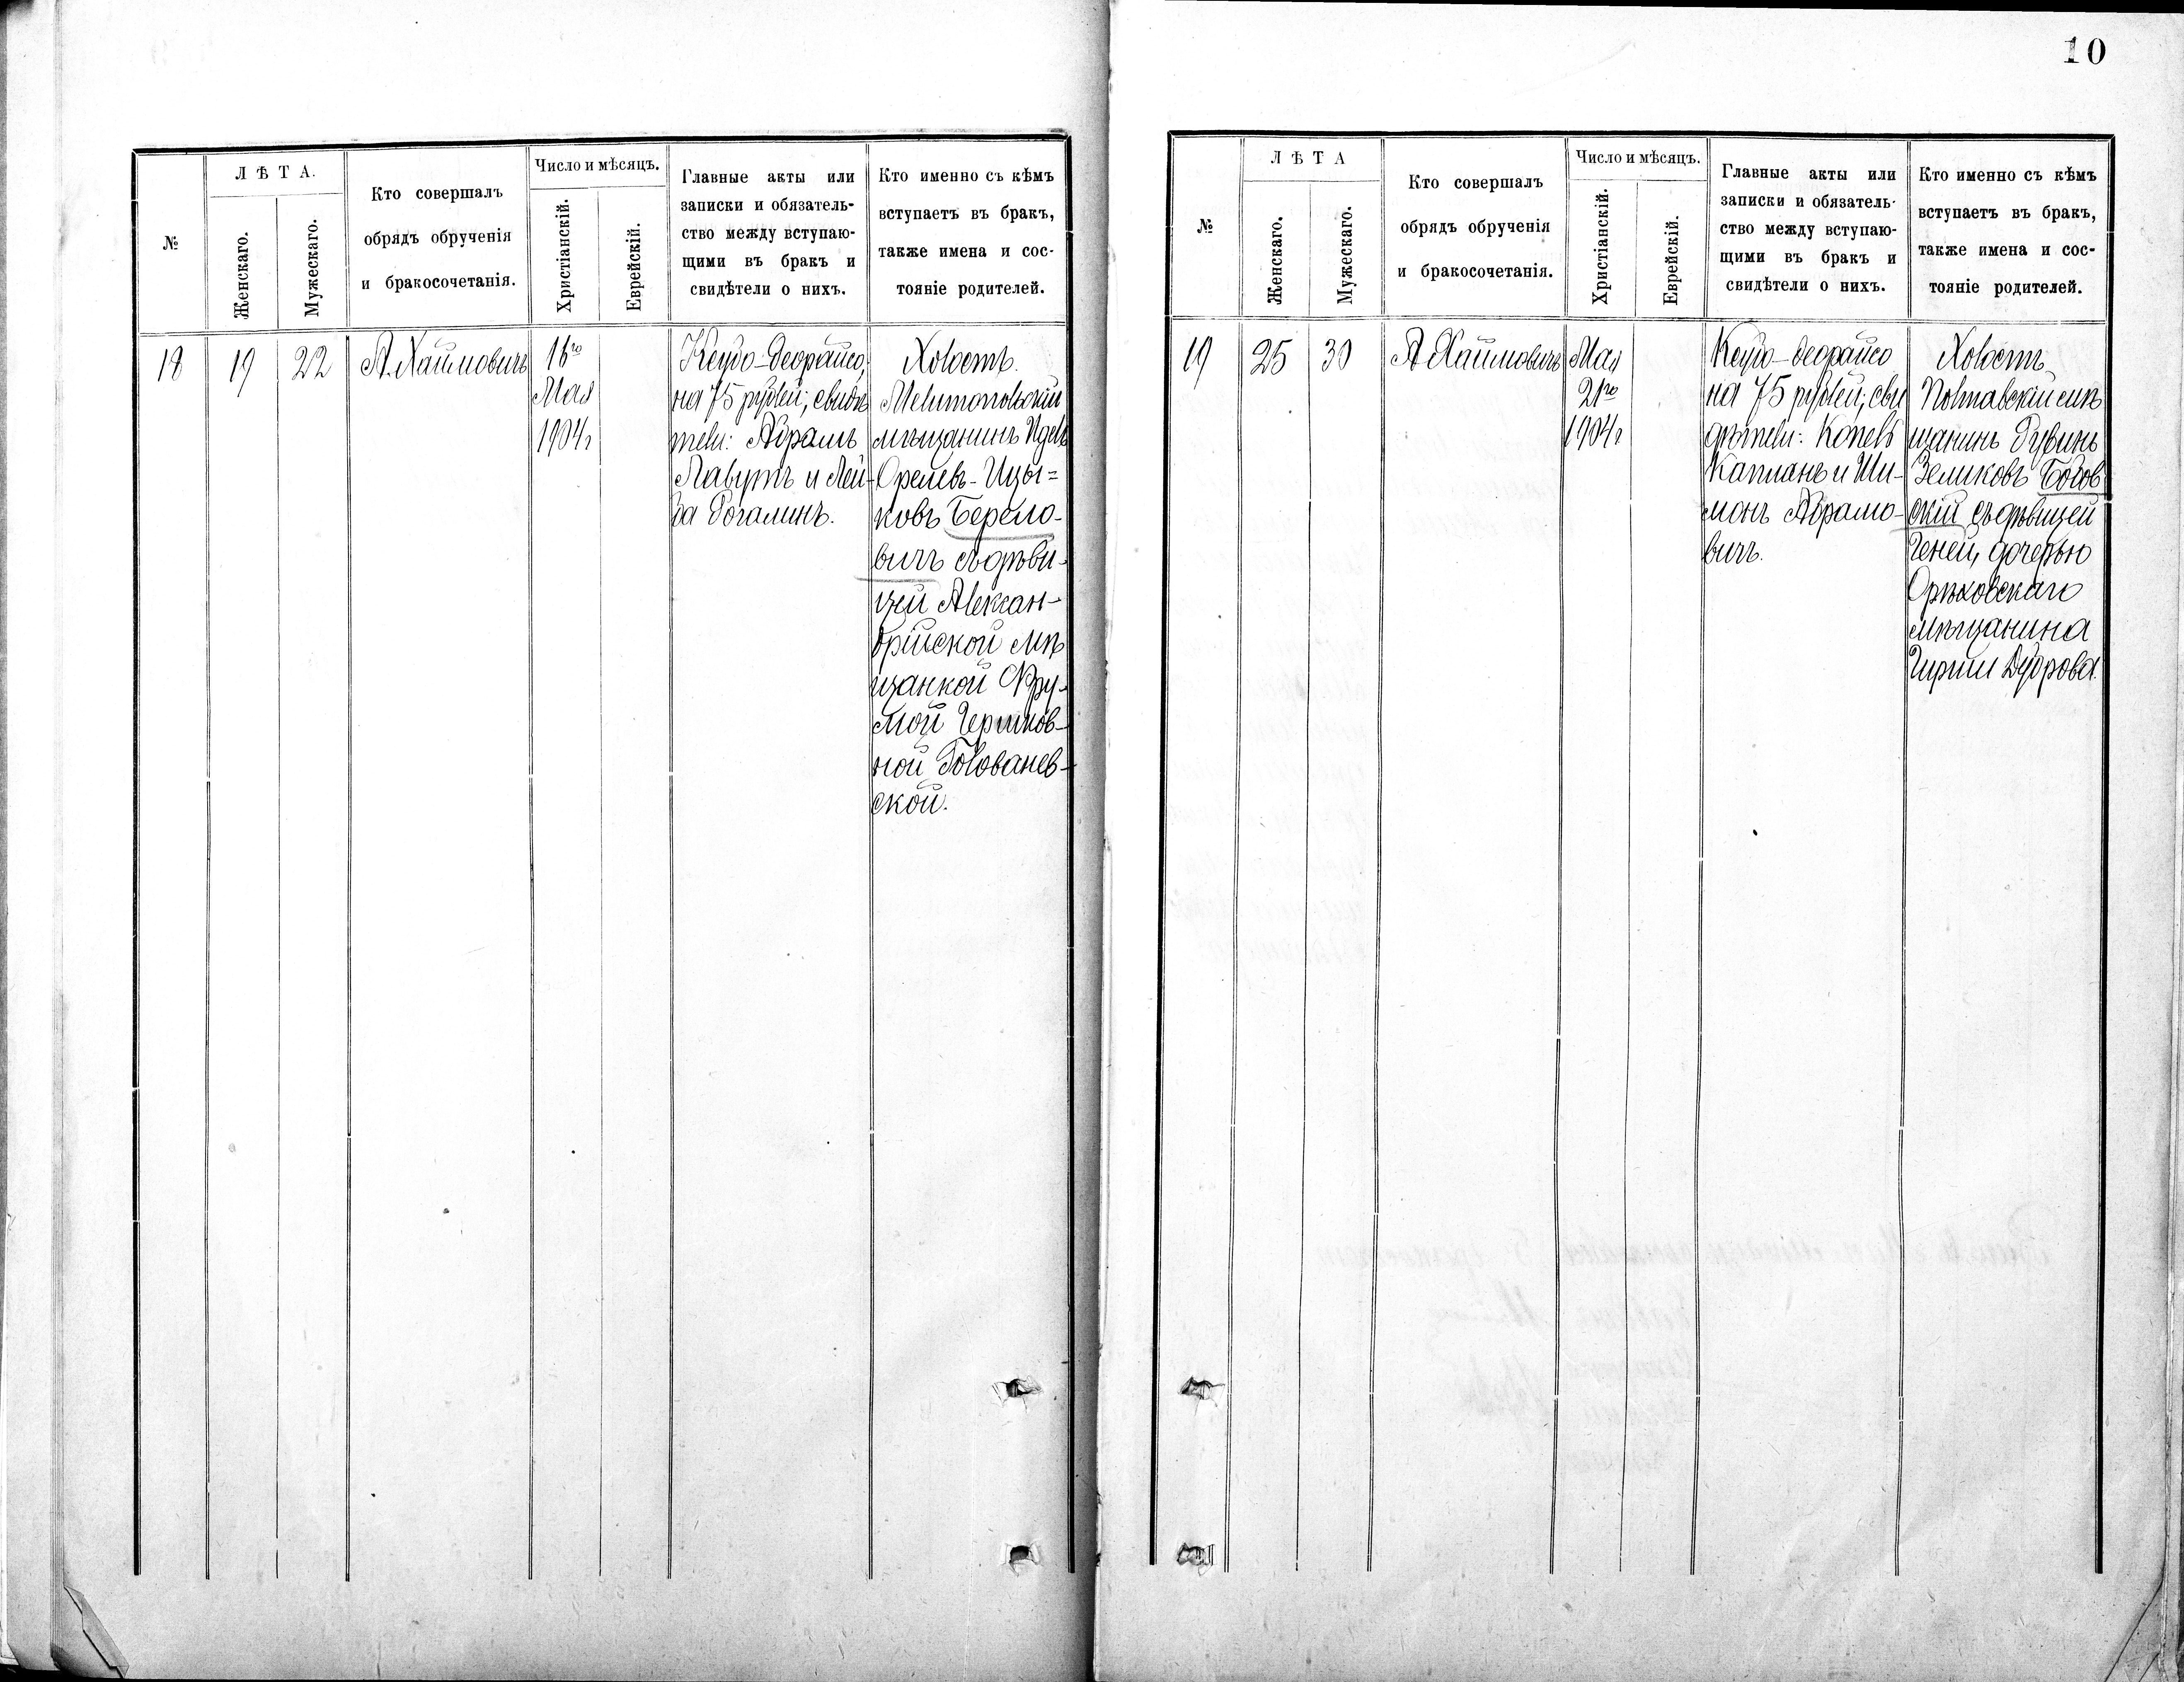 №
ЛѢТА.
Женскаго.
Мужескаго.
Кто совершалъ
обрядъ обрученія
и бракосочетанія.
Число и мѣсяцъ.
Христіанскій.
Еврейскій.
Главные акты или
записки и обязатель-
ство между вступаю-
щими въ бракъ и
свидѣтели о нихъ.
Кто именно съ кѣмъ
вступаетъ въ бракъ,
также имена и сос-
тояніе родителей.
18
19
22
А. Хаимовичъ
16го
Мая
1904г
Кецдо-деорайсо,
на 75 рублей; свидѣ
тели: Абрамъ
Лавутъ и Лей-
ба Рогалинъ.
Холостъ.
Мелитопольскій
мѣщанинъ Идель
Орелевъ-Ицы=
ковъ Берело-
вичъ съ дѣви-
цей Алексан-
дрійской мѣ
щанкой Фру-
мой Гершков-
ной Голованев-
ской.
10
№
ЛѢТА
Женскаго.
Мужескаго.
Кто совершалъ
обрядъ обрученія
и бракосочетанія.
Число и мѣсяцъ.
Христіанскій.
Еврейскій.
Главные акты или
записки и обязатель-
ство между вступаю-
щими въ бракъ и
свидѣтели о нихъ.
Кто именно съ кѣмъ
вступаетъ въ бракъ,
также имена и сос-
тояніе родителей.
19
25
30
А Хаимовичъ
Мая
21го
1904г
Кецдо-деорайсо
на 75 рублей; сви
дѣтели: Копель
Капланъ и Ши-
монъ Абрамо-
вичъ.
Холостъ
Полтавскій мѣ
щанинъ Рувинъ
Зеликовъ Богов
скій съ дѣвицей
Геней, дочерью
Орѣховскаго
мѣщанина
Гирши Дуброва.